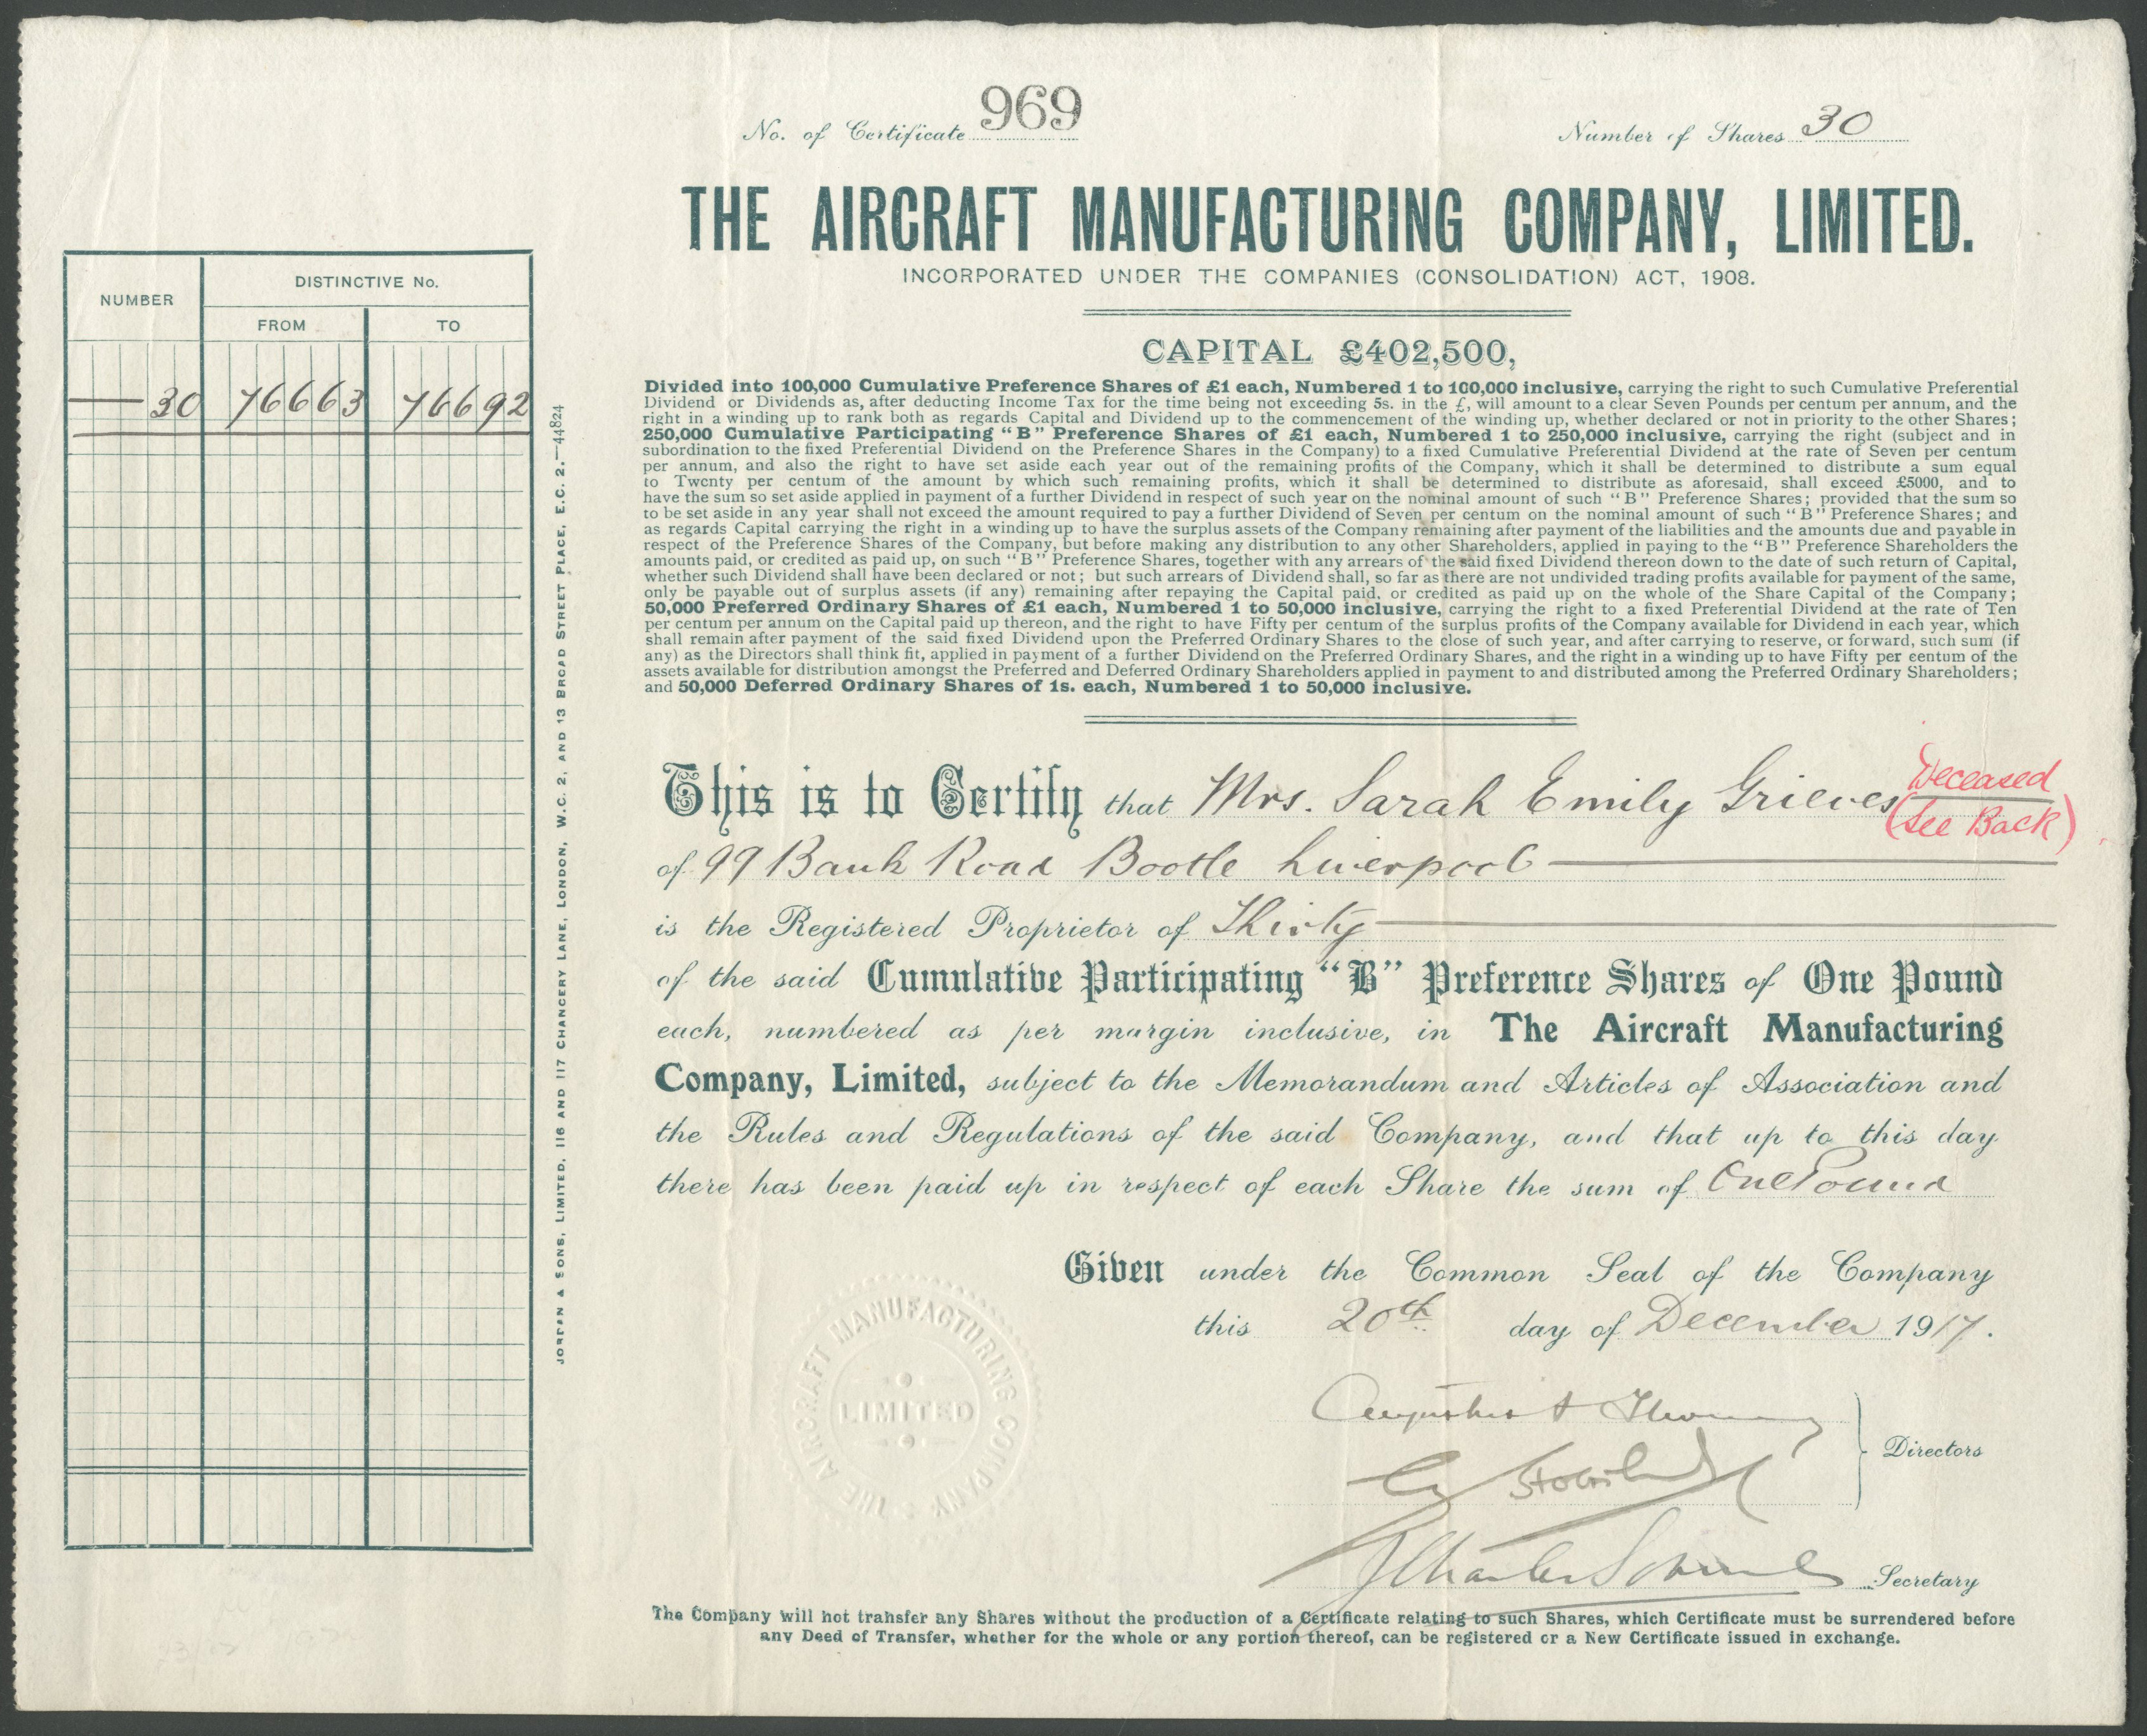 No. of Certificate 969
Number of Shares 30
THE AIRCRAFT MANUFACTURING COMPANY, LIMITED.
INCORPORATED UNDER THE COMPANIES (CONSOLIDATION) ACT, 1908.
CAPITAL £402,500,
Divided into 100,000 Cumulative Preference Shares of £1 each, Numbered 1 to 100,000 inclusive, carrying the right to such Cumulative Preferential
Dividend or Dividends as, after deducting Income Tax for the time being not exceeding 5s. in the £, will amount to a clear Seven Pounds per centum per annum, and the
right in a winding up to rank both as regards Capital and Dividend up to the commencement of the winding up, whether declared or not in priority to the other Shares;
250,000 Cumulative Participating "B" Preference Shares of £1 each, Numbered 1 to 250,000 inclusive, carrying the right (subject and in
subordination to the fixed Preferential Dividend on the Preference Shares in the Company) to a fixed Cumulative Preferential Dividend at the rate of Seven per centum
per annum, and also the right to have set aside each year out of the remaining profits of the Company, which it shall be determined to distribute a sum equal
to Twenty per centum of the amount by which such remaining profits, which it shall be determined to distribute as aforesaid, shall exceed £5000, and to
have the sum so set aside applied in payment of a further Dividend in respect of such year on the nominal amount of such "B" Preference Shares; provided that the sum so
to be set aside in any year shall not exceed the amount required to pay a further Dividend of Seven per centum on the nominal amount of such "B" Preference Shares; and
as regards Capital carrying the right in a winding up to have the surplus assets of the Company remaining after payment of the liabilities and the amounts due and payable in
respect of the Preference Shares of the Company, but before making any distribution to any other Shareholders, applied in paying to the "B" Preference Shareholders the
amounts paid, or credited as paid up, on such "B" Preference Shares, together with any arrears of the said fixed Dividend thereon down to the date of such return of Capital,
whether such Dividend shall have been declared or not; but such arrears of Dividend shall, so far as there are not undivided trading profits available for payment of the same,
only be payable out of surplus assets (if any) remaining after repaying the Capital paid, or credited as paid up on the whole of the Share Capital of the Company;
50,000 Preferred Ordinary Shares of £1 each, Numbered 1 to 50,000 inclusive, carrying the right to a fixed Preferential Dividend at the rate of Ten
per centum per annum on the Capital paid up thereon, and the right to have Fifty per centum of the surplus profits of the Company available for Dividend in each year, which
shall remain after payment of the said fixed Dividend upon the Preferred Ordinary Shares to the close of such year, and after carrying to reserve, or forward, such sum (if
any) as the Directors shall think fit, applied in payment of a further Dividend on the Preferred Ordinary Shares, and the right in a winding up to have Fifty per centum of the
assets available for distribution amongst the Preferred and Deferred Ordinary Shareholders applied in payment to and distributed among the Preferred Ordinary Shareholders;
and 50,000 Deferred Ordinary Shares of 1s. each, Numbered 1 to 50,000 inclusive.
NUMBER
DISTINCTIVE No.
FROM TO
30 76663 76692
JORDAN & SONS, LIMITED, 116 AND 117 CHANCERY LANE, LONDON, W.C. 2, AND 13 BROAD STREET PLACE, E.C. 2.—44824
This is to Certify that Mrs. Sarah Emily Grieves
Deceased
(See Back)
of 99 Bank Road Bootle Liverpool
is the Registered Proprietor of Thirty
of the said Cumulative Participating "B" Preference Shares of One Pound
each, numbered as per margin inclusive, in The Aircraft Manufacturing
Company, Limited, subject to the Memorandum and Articles of Association and
the Rules and Regulations of the said Company, and that up to this day
there has been paid up in respect of each Share the sum of One Pound
Given under the Common Seal of the Company
this 20th day of December 1917.
THE AIRCRAFT MANUFACTURING COMPANY
LIMITED
Directors
Secretary
The Company will not transfer any Shares without the production of a Certificate relating to such Shares, which Certificate must be surrendered before
any Deed of Transfer, whether for the whole or any portion thereof, can be registered or a New Certificate issued in exchange.